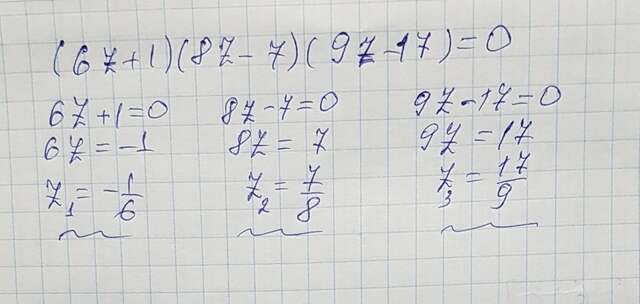 (6z+1)(8z-7)(9z-17)=0
6z+1=0 8z-7=0 9z-17=0
6z=-1 8z=7 9z=17
z₁=-1/6 z₂=7/8 z₃=17/9